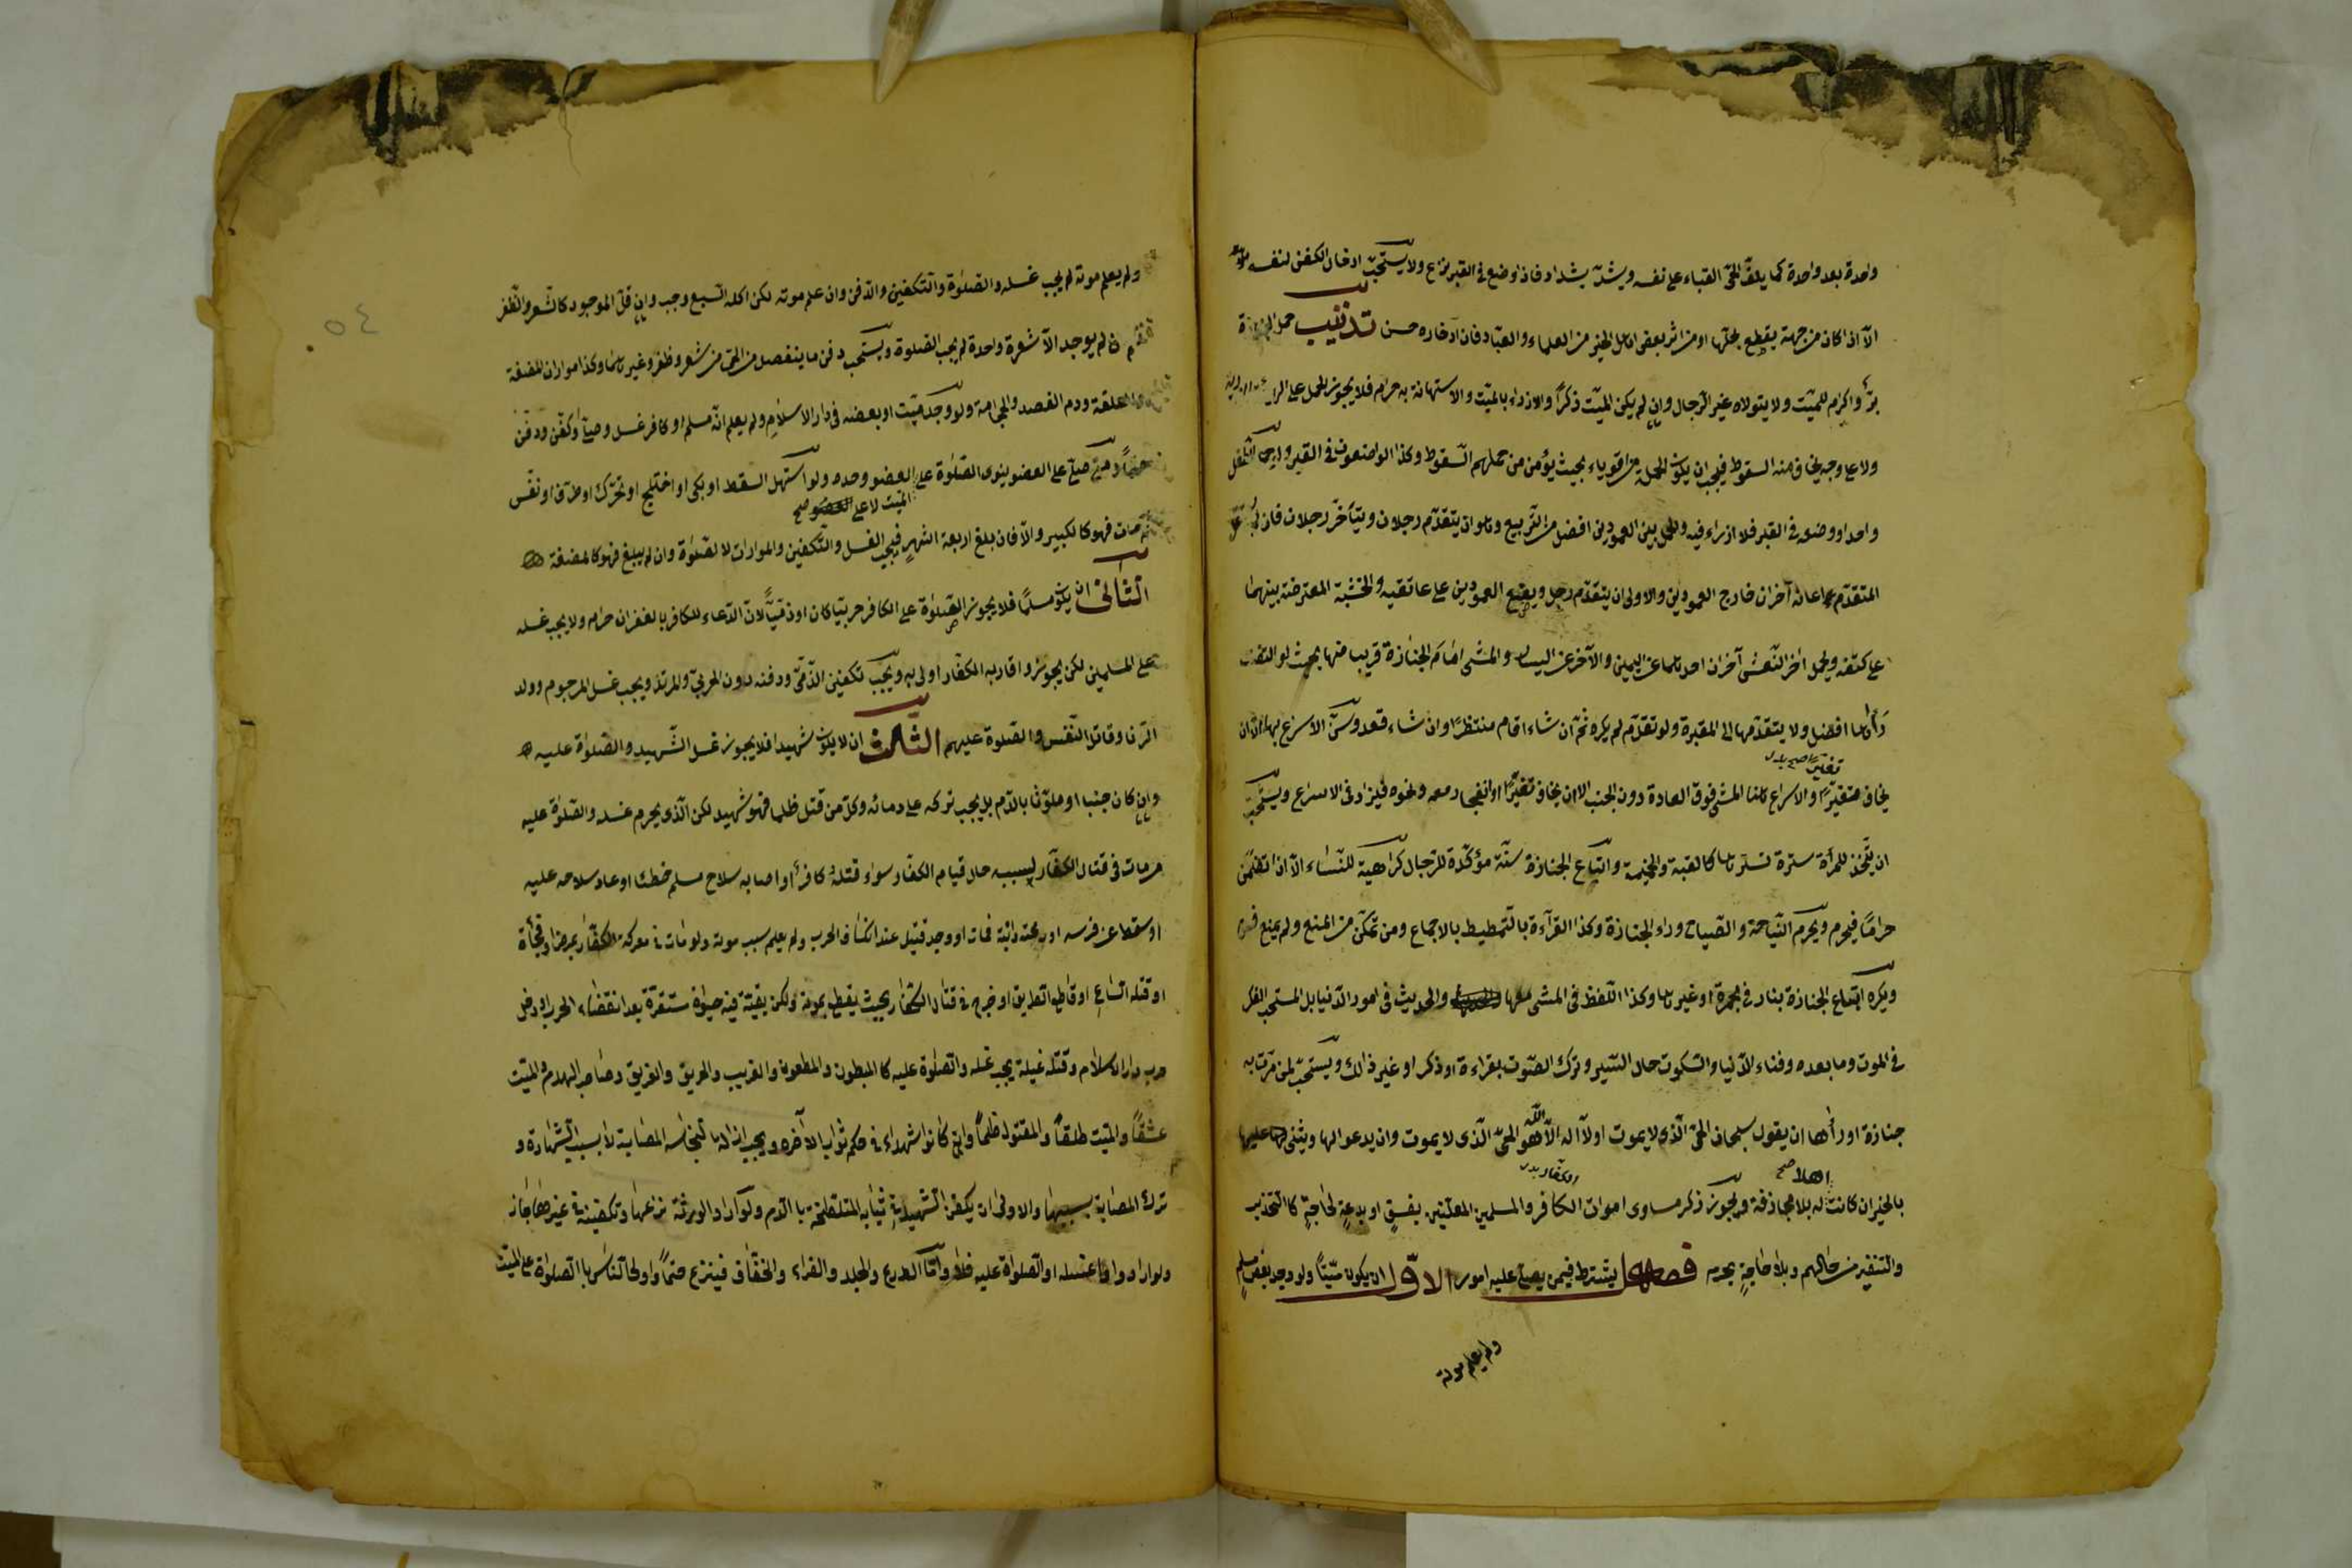 واحدة بعد واحدة كما يلفّ الحيّ القباء على نفسه ويشدّ بشداد فاذا وضع في القبر نزع ولا يستحبّ ادخال الكفن لنفسه
الّا اذا كان من جهة يقطع بحلّها او من اثر بعض اهل الخير من العلماء والعبّاد فان ادّخاره حسن تذنيب حمل الجنازة
برّ واكرم للميّت ولا يتولاه غير الرّجال وان لم يكن الميّت ذكرًا والازراء بالميّت والاستهانة به حرام فلا يجوز الحمل على
ولا على وجه يخاف منه السقوط فيجب ان يكون الحملة من اقوياء بحيث يؤمن من حملهم السّقوط وكذا الواضعون في القبر
واحد او وضعه في القبر فلا ازراء فيه والحمل بين العمودين افضل من التّربيع وهو ان يتقدّم رجلان ويتأخّر رجلان فان
المتقدّم اعانه آخران خارج العمودين والاولى ان يتقدّم رجل ويضع العمودين على عاتقيه والخشبة المعترضة بينهما
على كتفه ويحمل اخر النّعش آخران احدهما عن اليمين والآخر عن اليسار والمشى امام الجنازة قريب منها بحيث لو التفت
رآها افضل ولا يتقدّمها الى المقبرة ولو تقدّم لم يكره ثمّ ان شاء اقام منتظرًا وان شاء قعد وسنّ الاسراع بها الّا ان
تغيّرًا صح بدل
يخاف والاسراع هنا المشى فوق العادة دون الخبب الا ان يخاف تغيّرًا او انفجار معه ونحوه فيزاد في الاسراع ويستحبّ
ان يتّخذ للمرأة سترة تسترها كالقبة والخيمة واتّباع الجنازة سنّة مؤكّدة للرّجال كراهية للنّساء الّا اذا تضمّن
حرامًا فيحرم ويحرم النّياحة والصّياح وراء الجنازة وكذا القرآءة بالتّمطيط بالاجماع ومن تمكّن من المنع ولم يمنع فسق
ويكره اتّباع الجنازة بنار في مجمرة او غيرها وكذا اللّغط في المشى معها والحديث في امور الدّنيا بل المستحبّ الفكر
في الموت وما بعده وفناء الدّنيا والسّكوت حال السّير وترك الصّوت بقراءة او ذكر او غير ذالك ويستحبّ لمن مرّت به
جنازة او رأها ان يقول سبحان الحيّ الّذي لا يموت او لا اله الّا الله هو الحيّ الّذي لا يموت وان يدعو لها ويثنى عليها
اهلا صح الكفّار بدل
بالخير ان كانت له بلا مجازفة ويجوز ذكر مساوى اموات الكافر والمسلمين المعلّنين بفسق او بدعة لحاجة كالتّحذير
والتنفير من حالهم وبلا حاجة يحرم فصل يشترط فيمن يصلّى عليه امور الاوّل ان يكون ميّتًا ولو وجد بعض مسلم
ولم يعلم موته
ولم يعلم موته لم يجب غسله والصّلوة والتّكفين والدّفن وان علم موته لكن اكله السّبع وجب وان قلّ الموجود كالشّعر والظّفر
لم يوجد الّا شعرة واحدة لم يجب الصّلوة ويستحبّ دفن ما ينفصل من الحىّ من شعر وظفر وغيرهما وكذا مواراة المضغة
والعلقة ودم الفصد والحجامة ولو وجد ميّت او بعضه في دار الاسلام ولم يعلم انّه مسلم او كافر غسل وصلّى وكفّن ودفن
صلّى على العضو ينوى الصّلوة على العضو وحده ولو استهلّ السقط او بكى او اختلج او تحرّك او طرف او تنفّس
الميّت لا على العضو صح
مات فهو كالكبير والّا فان بلغ اربعة اشهر فيجب الغسل والتّكفين والموارات لا الصّلوة وان لم يبلغ فهو كالمضغة
الثّانى ان يكون مسلمًا فلا يجوز الصّلوة على الكافر حربيّا كان او ذمّيّا لانّ الدّعاء للكافر بالغفران حرام ولا يجب غسله
على المسلمين لكن يجوز واقاربه الكفّار اولى به ويجب تكفين الذّمّى ودفنه دون الحربىّ والمرتدّ ويجب غسل المرجوم وولد
الزّنا وقاتل النّفس والصّلوة عليهم الثّالث ان لا يكون شهيدا فلا يجوز غسل الشّهيد والصّلوة عليه
وان كان جنبا او ملوّثا بالدّم بل يجب تركه على دمائه وكلّ من قتل ظلما فهو شهيد لكن الّذى يحرم غسله والصّلوة عليه
من مات في قتال الكفّار بسببه حال قيام الكفّار سواء قتله كافر او اصابه سلاح مسلم خطأ او عاد سلاحه عليه
او سقط عن فرسه او رمحته دابّة فمات او وجد قتيل عند انكشاف الحرب ولم يعلم سبب موته ولو مات في معركة الكفّار بمرض او فجأة
او قتله الباغى او قاطع الطريق او جرح في قتال الكفّار بحيث يقطع بموته ولكن بقيت فيه حيوة مستقرّة بعد انقضاء الحرب او دخل
حربى دار الاسلام وقتله غيلة يجب غسله والصّلوة عليه كالمبطون والمطعون والغريب والحريق والغريق وصاحب الهدم والميّت
عشقًا والميّت طلقًا والمقتول ظلمًا وان كانوا شهداء في حكم ثواب الآخرة ويجب ازالة النجاسة المصابة لا بسبب الشّهادة و
ترك المصابة بسببها والاولى ان يكفن الشّهيد في ثيابه المتلطّخة بالدّم ولو اراد الورثة نزعها وتكفينه في غيرها جاز
ولو ارادوا غسله او الصّلوة عليه فلا وامّا الدّرع والجلد والفراء والخفّاف فينزع حتمًا واولى النّاس بالصّلوة على الميّت